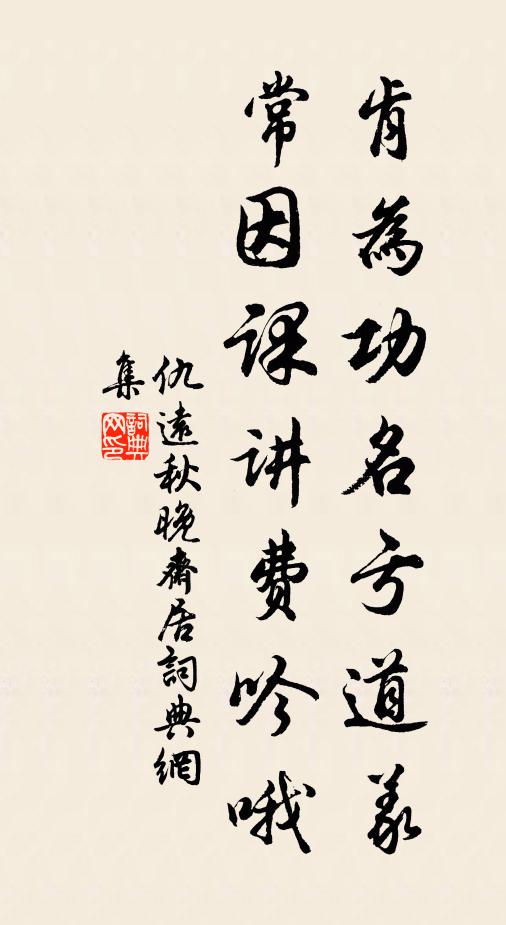 肯為功名亏道义
常因课讲费吟哦
仇遠秋晚齋居詞典網
集
詞典网印